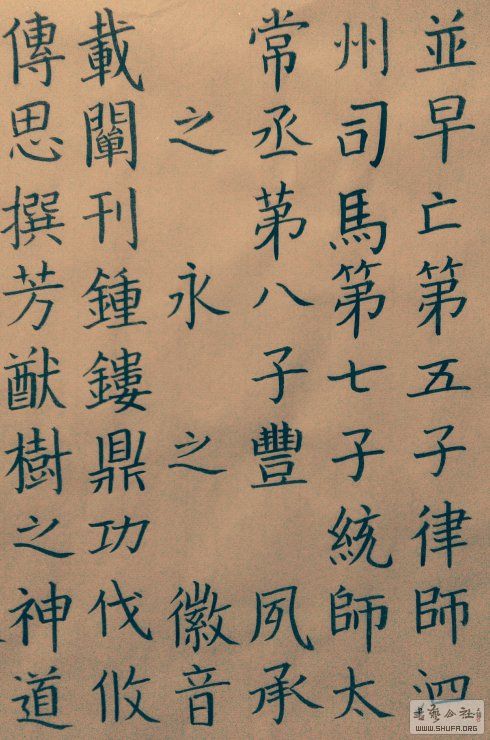 並早亡第五子律師泗
州司馬第七子統師太
常丞苐八子豐 夙承
之 永 之 徽音
載闡刊鍾鏤鼎功伐攸
傳思撰芳猷樹之神道
WWW.SHUFA.ORG